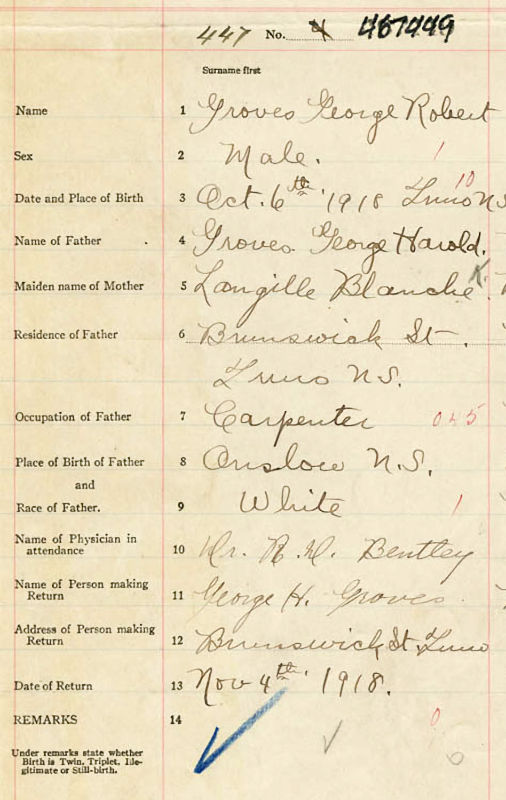 447 No. 4 467449
Surname first
Name 1 Groves George Robert
Sex 2 Male. 1
Date and Place of Birth 3 Oct. 6th 1918 Truro N.S 10
Name of Father 4 Groves George Harold.
Maiden name of Mother 5 Langille Blanche K.
Residence of Father 6 Brunswick St.
Truro N.S.
Occupation of Father 7 Carpenter 045
Place of Birth of Father 8 Onslow N.S.
and
Race of Father. 9 White 1
Name of Physician in
attendance 10 Dr. Bentley
Name of Person making
Return 11 George H. Groves.
Address of Person making
Return 12 Brunswick St. Truro
Date of Return 13 Nov 4th 1918.
REMARKS 14 0
Under remarks state whether
Birth is Twin, Triplet, Ille-
gitimate or Still-birth.